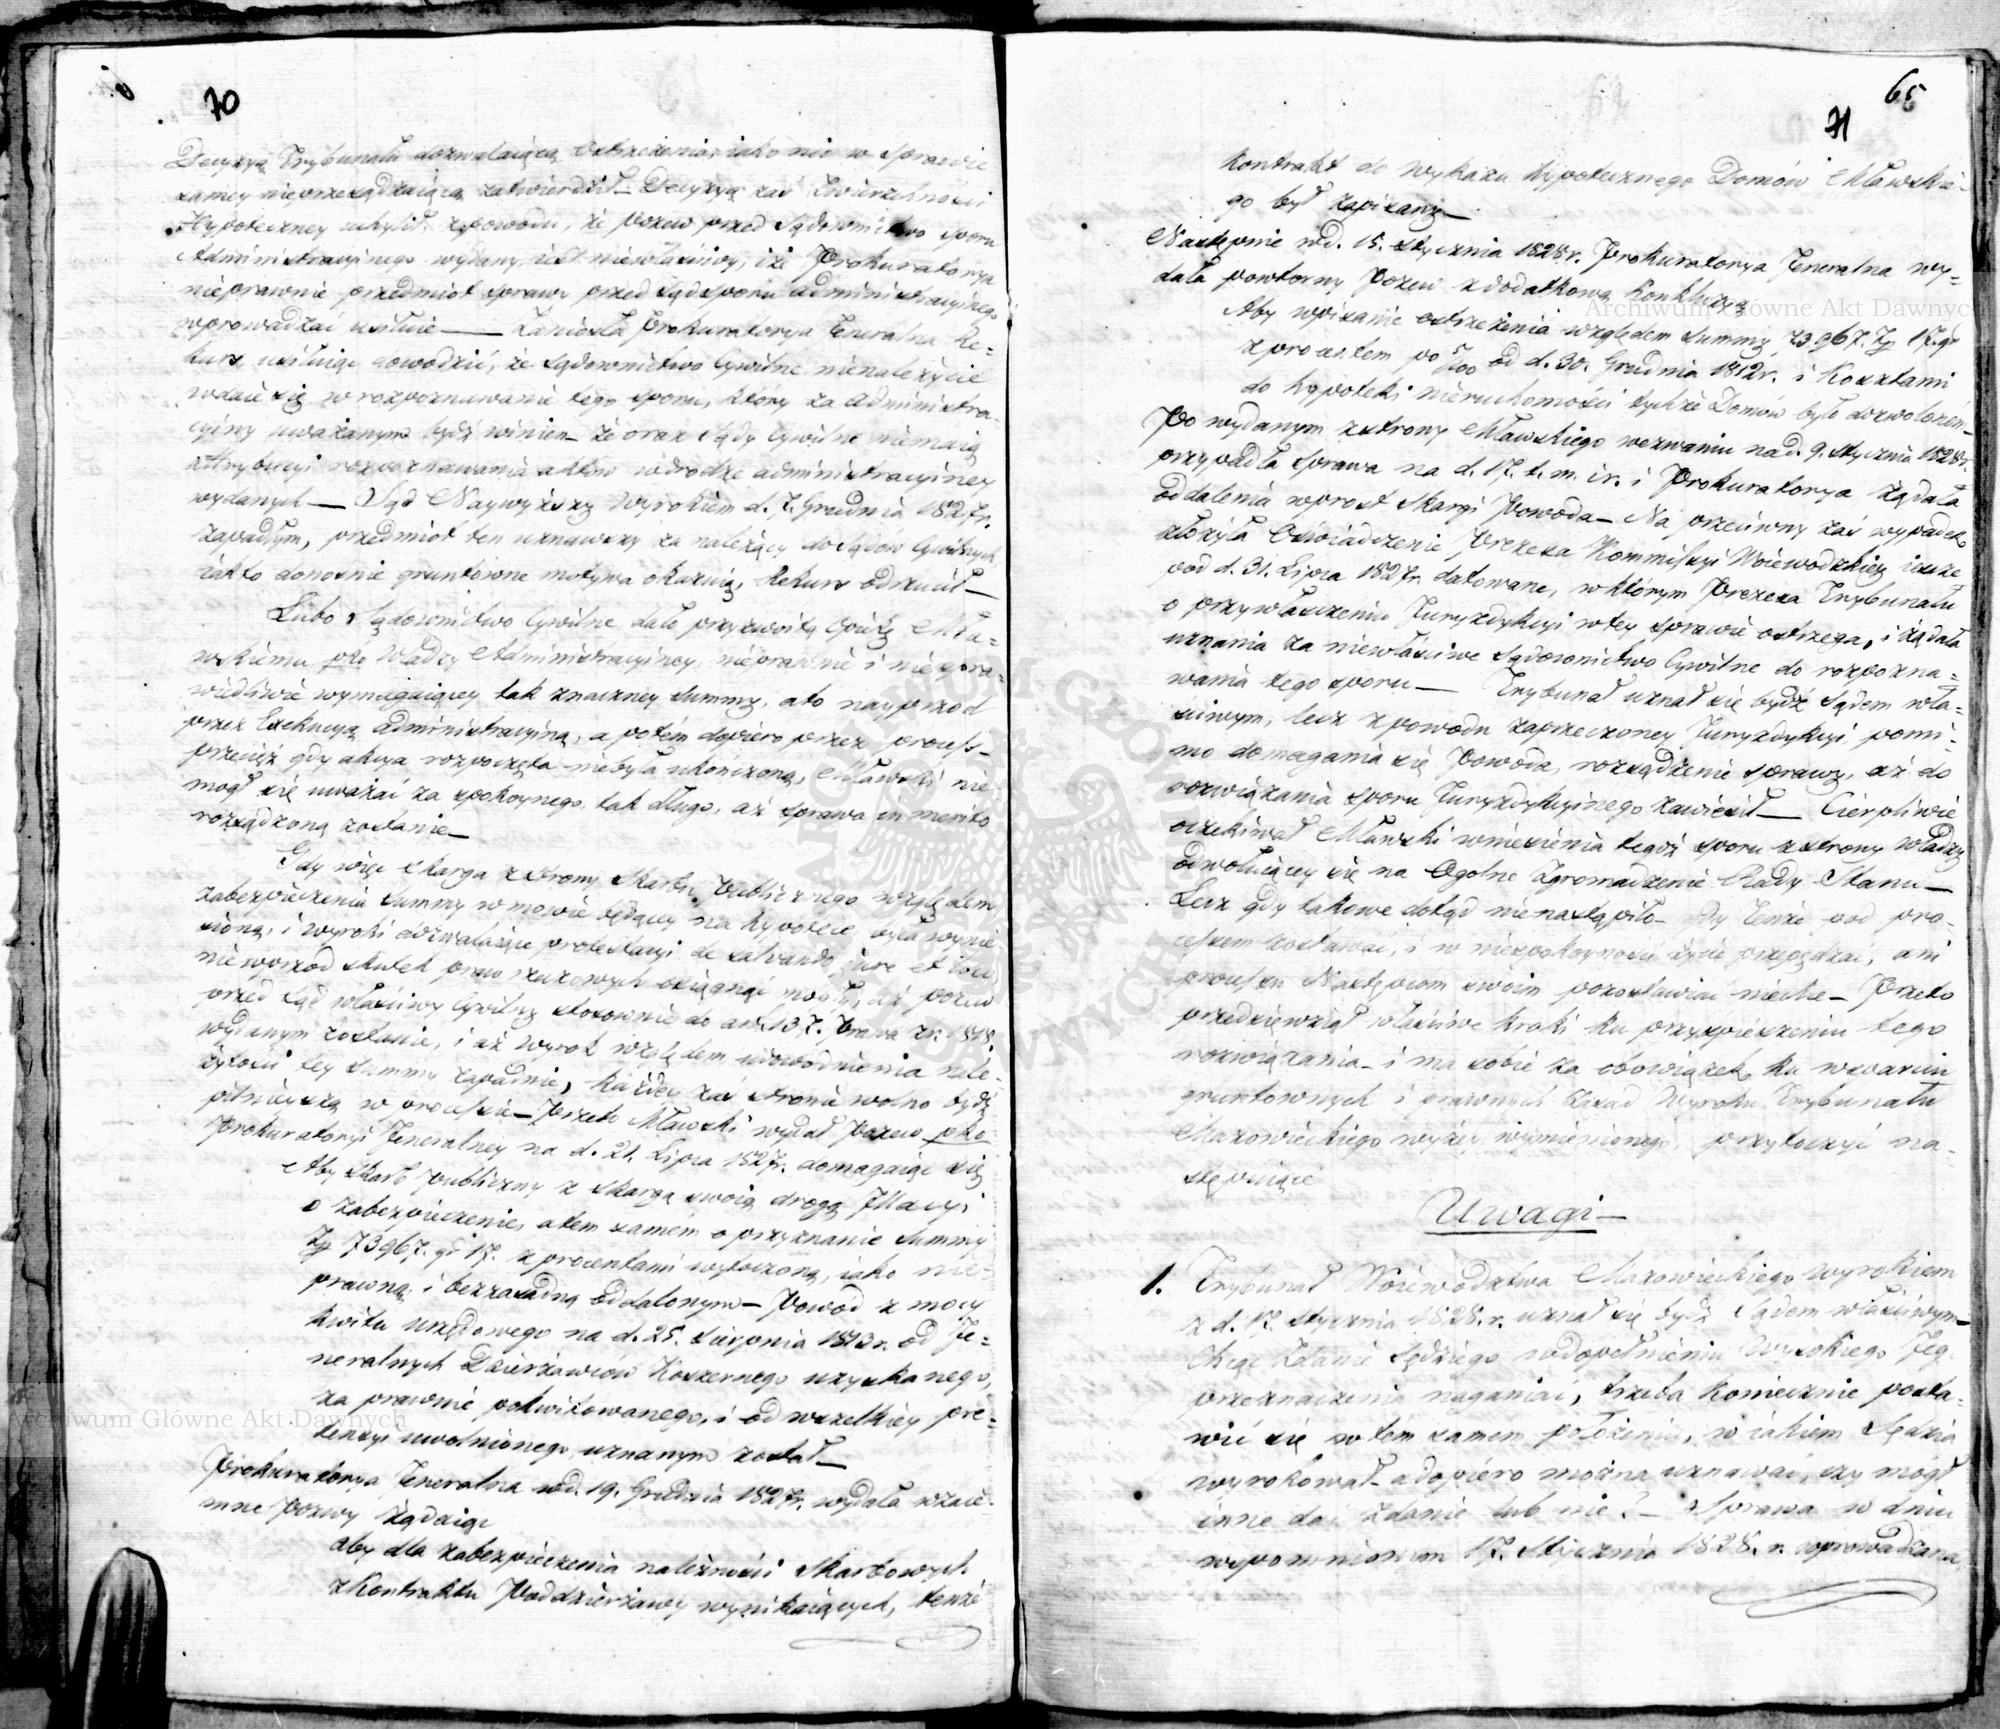 70
Decyzyą Trybunału dozwalaiącą Ostrzeżenia, iako nic w sprawie
samey nieprzesądzaiącą zatwierdził — Decyzyą zaś Zwierzchności
Hypoteczney uchylił, z powodu, że pozew przed Sądownictwo sporu
Administracyinego wydany, iest niewłaściwy, i że Prokuratorya
nieprawnie przedmiot sprawy przed Sąd sporu administracyinego
wprowadzać usiłuie — Zaniosła Prokuratorya Jeneralna Re-
kurs, usiłuiąc dowodzić, że Sądownictwo Cywilne nienależycie
wdaie się w rozpoznawanie tego sporu, który za administra-
cyiny uważanym bydź winien — że oraz Sądy Cywilne niemaią
Attrybucyi rozpoznawania aktów w drodze administracyiney
wydanych — Sąd Naywyższy Wyrokiem d. 7. Grudnia 1827 r.
zapadłym, przedmiot ten uznawszy za należący do Sądow Cywilnych
iak to donośnie gruntowne motywa okazuią, Rekurs odrzucił —
Lubo Sądownictwo Cywilne dało przyzwoitą Opiekę Mła-
wskiemu pko Władzy Administracyiney, nieprawnie i niespra-
wiedliwie wymagaiącey tak znaczney summy, a to nayprzod
przez Exekucyą administracyiną, a potém dopiero przez process —
przecież gdy akcya rozpoczęta niebyła ukończoną, Mławski nie
mogł się uważać za spokoynego, tak długo, aż sprawa in merito
rozsądzoną zostanie —
Gdy więc skarga z strony Skarbu Publicznego względem
zabezpieczenia summy w mowie będącey na hypotece, była wynie-
sioną, i Wyroki dozwalaiące protestacyi de salvando jure et loci
nie wprzod skutek praw rzeczowych osiągnąć mogły, aż pozew
przed Sąd właściwy Cywilny stosownie do art. 137. Prawa z r. 1818.
wydanym zostanie, i aż wyrok względem udowodnienia nale-
żytości tey summy zapadnie, każdey zaś stronie wolno bydź
pilnieyszą w processie — Przeto Mławski wydał Pozew pko
Prokuratoryi Jeneralney na d. 21. Lipca 1827 r. domagaiąc się
Aby Skarb Publiczny z skargą swoią drogą Illacyi
o zabezpieczenie, a tem samém o przyznanie summy
Zp 73967. gr 17. z procentami wytoczoną, iako nie-
prawną i bezzasadną oddalonym — Powód z mocy
kwitu urzędowego na d. 25. Sierpnia 1813 r. od Je-
neralnych Dzierżawców Koszernego uzyskanego,
za prawnie pokwitowanego, i od wszelkiey pre-
tensyi uwolnionego uznanym został —
Prokuratorya Jeneralna w d. 19. Grudnia 1827 r. wydała wzaie-
mne Pozwy żądaiąc
aby dla zabezpieczenia należności Skarbowych
z Kontraktu Poddzierżawy wynikaiących, tenże
65
71
Kontrakt do wykazu hypotecznego Domów Mławskie-
go był zapisany —
Następnie w d. 15. Stycznia 1828 r. Prokuratorya Jeneralna wy-
dała powtorny Pozew z dodatkową Konkluzyą
Aby wpisanie ostrzeżenia względem summy 73967. Zp 17. gr
z procentem po 5/100 od d. 30. Grudnia 1812 r. i Kosztami
do hypoteki nieruchomości tychże Domów było dozwolonem —
Po wydanym z strony Mławskiego wezwaniu na d. 9. Stycznia 1828 r.
przypadła sprawa na d. 17. t. m. i r. i Prokuratorya żądała
oddalenia wprost skargi Powoda — Na przeciwny zaś wypadek
złożyła Oświadczenie Prezesa Kommissyi Woiewodzkiey ieszcze
pod d. 31. Lipca 1827 r. datowane, w którym Prezesa Trybunału
o przywłaszczeniu Juryzdykcyi w tey sprawie ostrzega, i żądała
uznania za niewłaściwe Sądownictwo Cywilne do rozpozna-
wania tego sporu — Trybunał uznał się bydź Sądem wła-
ściwym, lecz z powodu zaprzeczoney Juryzdykcyi, pomi-
mo domagania się Powoda, rozsądzenie sprawy, aż do
rozwiązania sporu Juryzdykcyinego zawiesił — Cierpliwie
oczekiwał Mławski wniesienia tegoż sporu z strony Władzy
odwołuiącey się na Ogolne Zgromadzenie Rady Stanu —
Lecz gdy takowe dotąd nie nastąpiło — gdy tenże pod pro-
cessem zostawać, i w niespokoyności życie przepędzać, ani
processu Następcom swoim pozostawiać niechce — Przeto
przedsięwziął właściwe kroki ku przyspieszeniu tego
rozwiązania — i ma sobie za obowiązek, ku wsparciu
gruntownych i prawnych Zasad Wyroku Trybunału
Mazowieckiego wyżey wymienionego, przytoczyć na-
stępuiące
Uwagi —
1. Trybunał Woiewództwa Mazowieckiego wyrokiem
z d. 17. Stycznia 1828. r. uznał się bydź Sądem właściwym —
Chcąc Zdanie Sędziego w dopełnieniu Wysokiego Jeg.
przeznaczenia naganiać, trzeba koniecznie posta-
wić się w tém samem położeniu, w iakiem Sędzia
wyrokował — a dopiero można uznawać, czy mógł
inne dać zdanie lub nie? — Sprawa w dniu
wspomnionym 17. Stycznia 1828. r. wprowadzana,
Archiwum Główne Akt Dawnych
Archiwum Główne Akt Dawnych